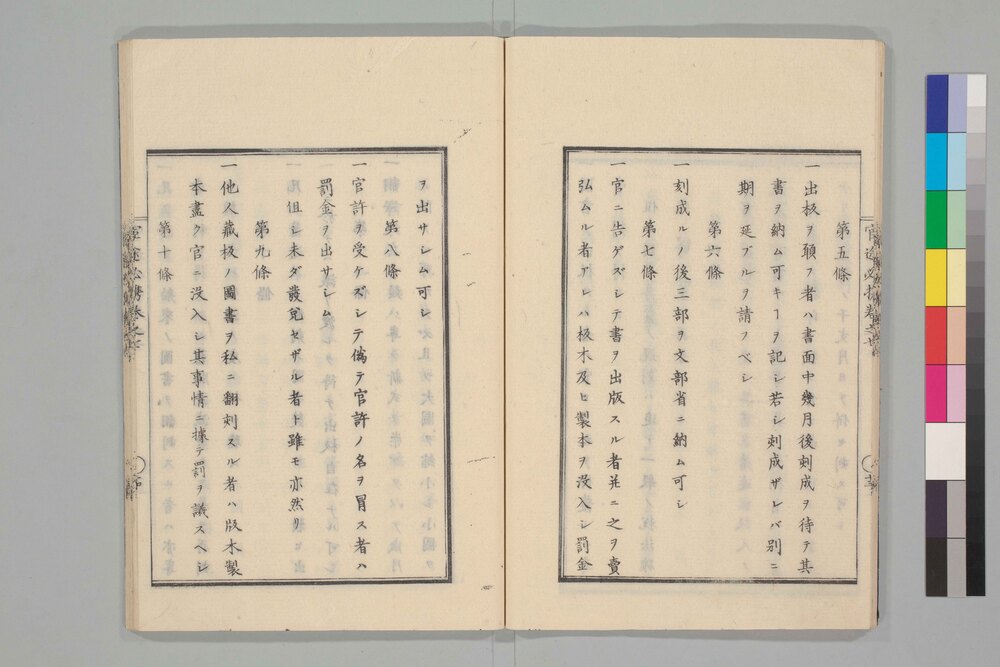 第五條
一出板ヲ願フ者ハ書面中幾月後刻成ヲ待テ其
書ヲ納ム可キヿヲ記シ若シ刻成ザレバ別ニ
期ヲ延ブルヲ請フベシ
第六條
一刻成ルノ後三部ヲ文部省ニ納ム可シ
第七條
一官ニ告ゲズシテ書ヲ出版スル者並ニ之ヲ賣
弘ムル者アレハ板木及ヒ製本ヲ沒入シ罰金
ヲ出サシム可シ
第八條
一官許ヲ受ケズシテ僞テ官許ノ名ヲ冒ス者ハ
罰金ヲ出サシム
但シ未ダ發兌セザル者ト雖モ亦然リ
第九條
一他人藏板ノ圖書ヲ私ニ翻刻スル者ハ版木製
本盡ク官ニ沒入シ其事情ニ據テ罰ヲ議スベシ
第十條